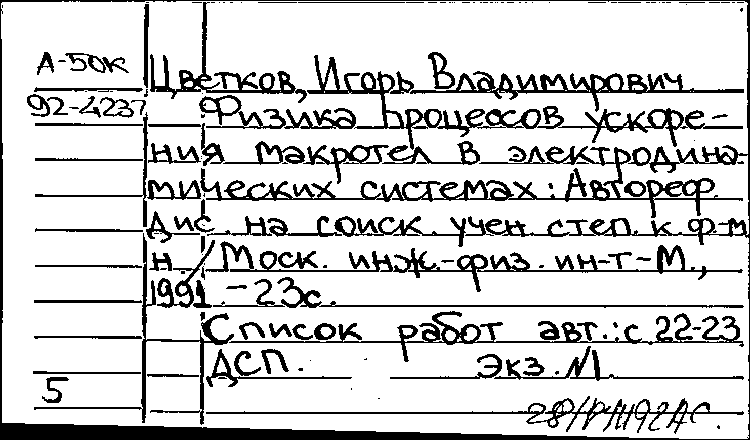 А-50К
Цветков, Игорь Владимирович
92-4237
Физика процессов ускоре-
ния макротел в электродина-
мических системах: Автореф.
Дис. на соиск. учен. степ. к. ф-м
н / Моск. инж.-физ. ин-т - М.,
1991. - 23с.
Список работ авт.: с. 22-23
ДСП. Экз. №1.
5